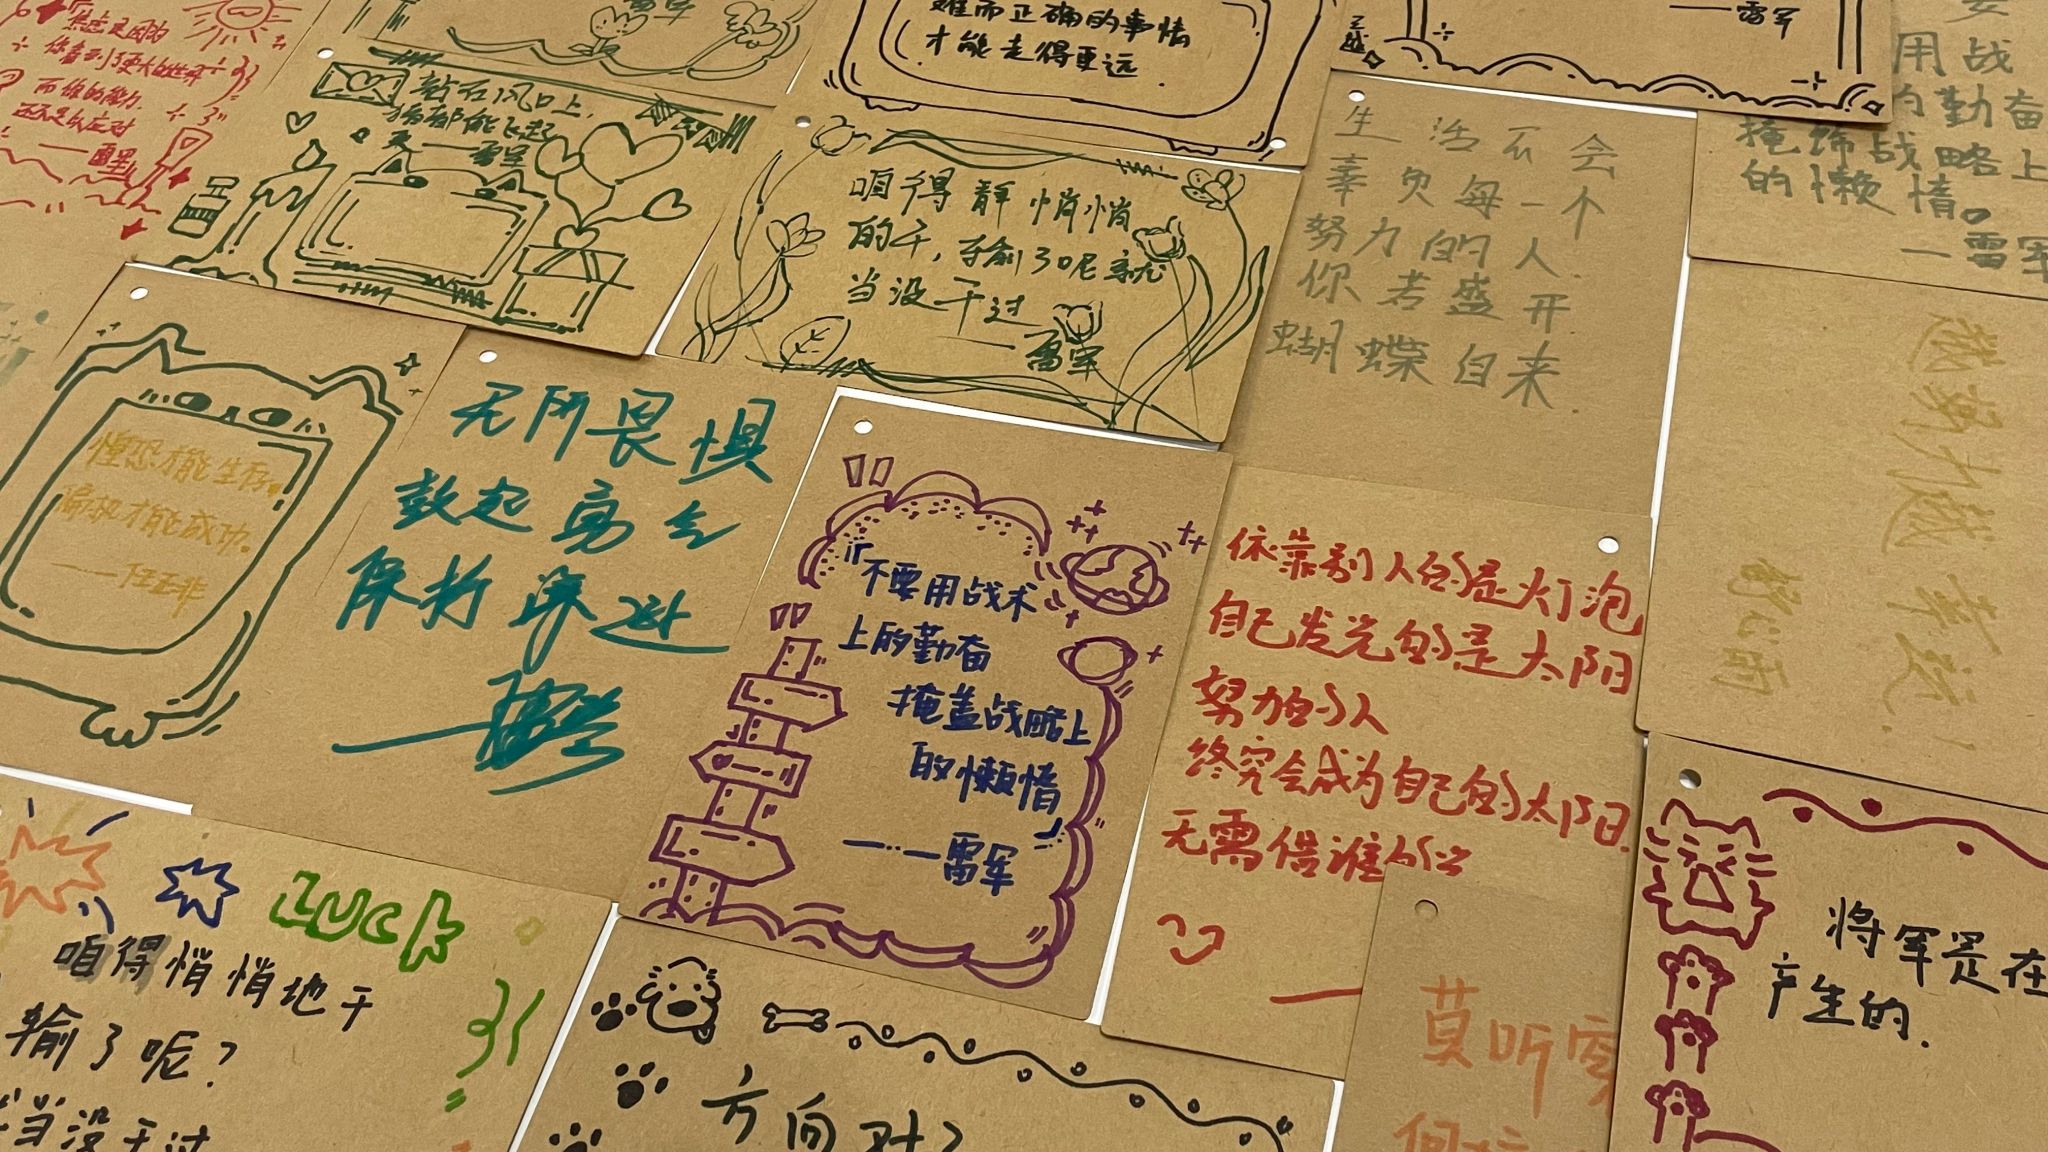 难而正确的事情
才能走得更远
——雷军
站在风口上,
猪都能飞起
来——雷军
咱得静悄悄
的干,夲输了呢就
当没干过
——雷军
生活不会
辜负每一个
努力的人.
你若盛开
蝴蝶自来
用战
的勤奋
掩饰战略上
的懒惰。
—雷军
惶恐才能生存。
偏执才能成功。
——任正非
无所畏惧
鼓起勇气
保持深进
『不要用战术
上的勤奋
掩盖战略上
的懒惰』
———雷军
依靠别人的是灯泡
自己发光的是太阳
努力的人
终究会成为自己的太阳.
无需借谁的光
LUCK
咱得悄悄地干
输了呢?
当没干过
方向对了
莫听穿
何妨
将军是在
产生的.